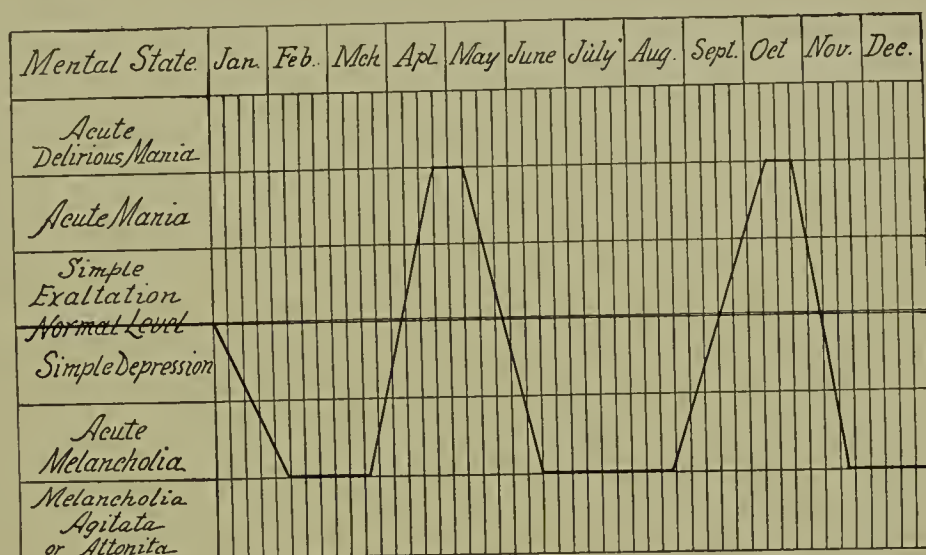 Mental State. Jan. Feb. Mch Apl. May June July Aug. Sept. Oct Nov. Dec.
Acute
Delirious Mania
Acute Mania
Simple
Exaltation
Normal Level
Simple Depression
Acute
Melancholia
Melancholia
Agitata
or Attonita